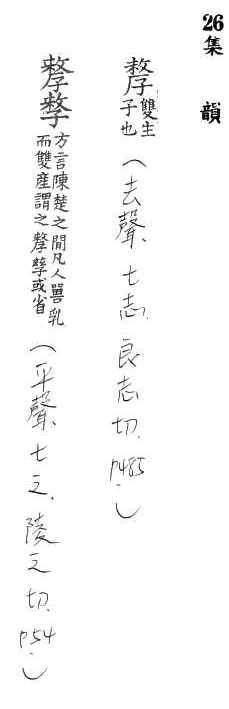 26 集韻
孷 雙生子也（去聲、七志、良志切、P485.）
孷孷 方言陳楚之間凡人嘼乳而雙產謂之孷孳或省（平聲、七之、陵之切、P54.）